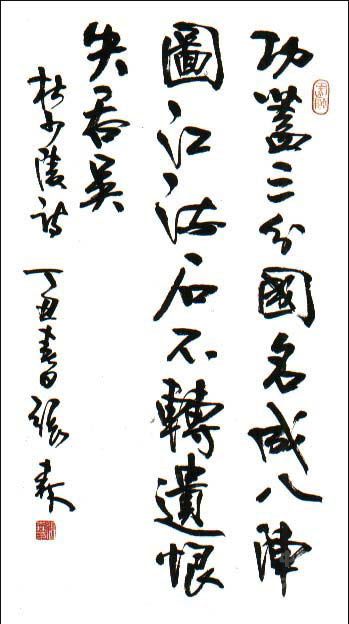 功蓋三分國名成八陣
圖江流石不轉遺恨
失吞吳
杜少陵詩 丁丑春日張森